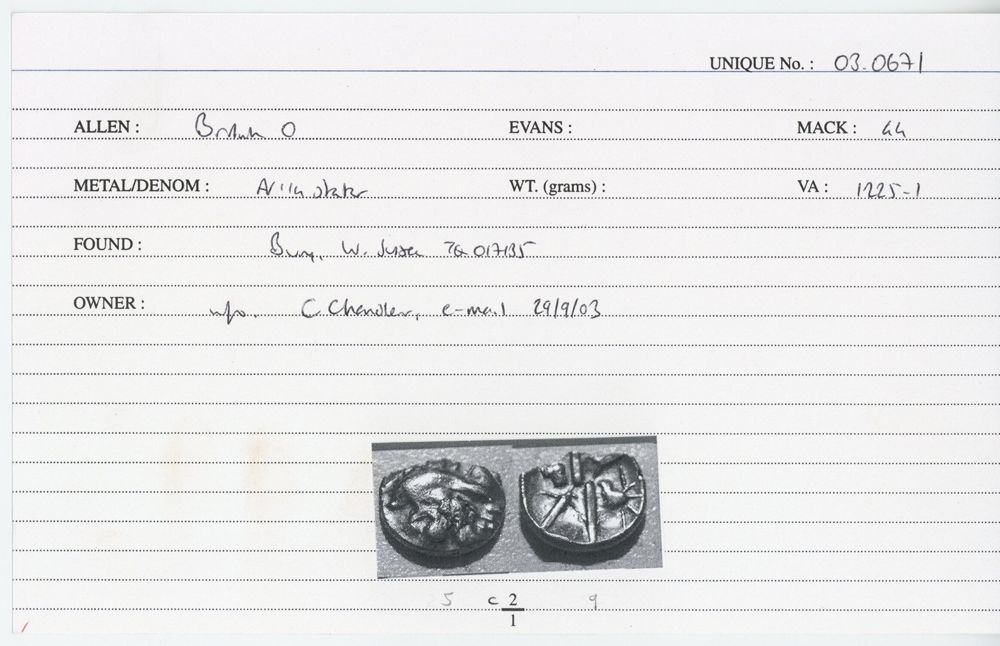 UNIQUE No. : 03.0671
ALLEN : British O EVANS : MACK : 44
METAL/DENOM : WT. (grams) : VA : 1225-1
FOUND : Bury, W. Sussex TQ 017135
OWNER : info. C. Chandler, e-mail 29/9/03
5 c 2 9
1